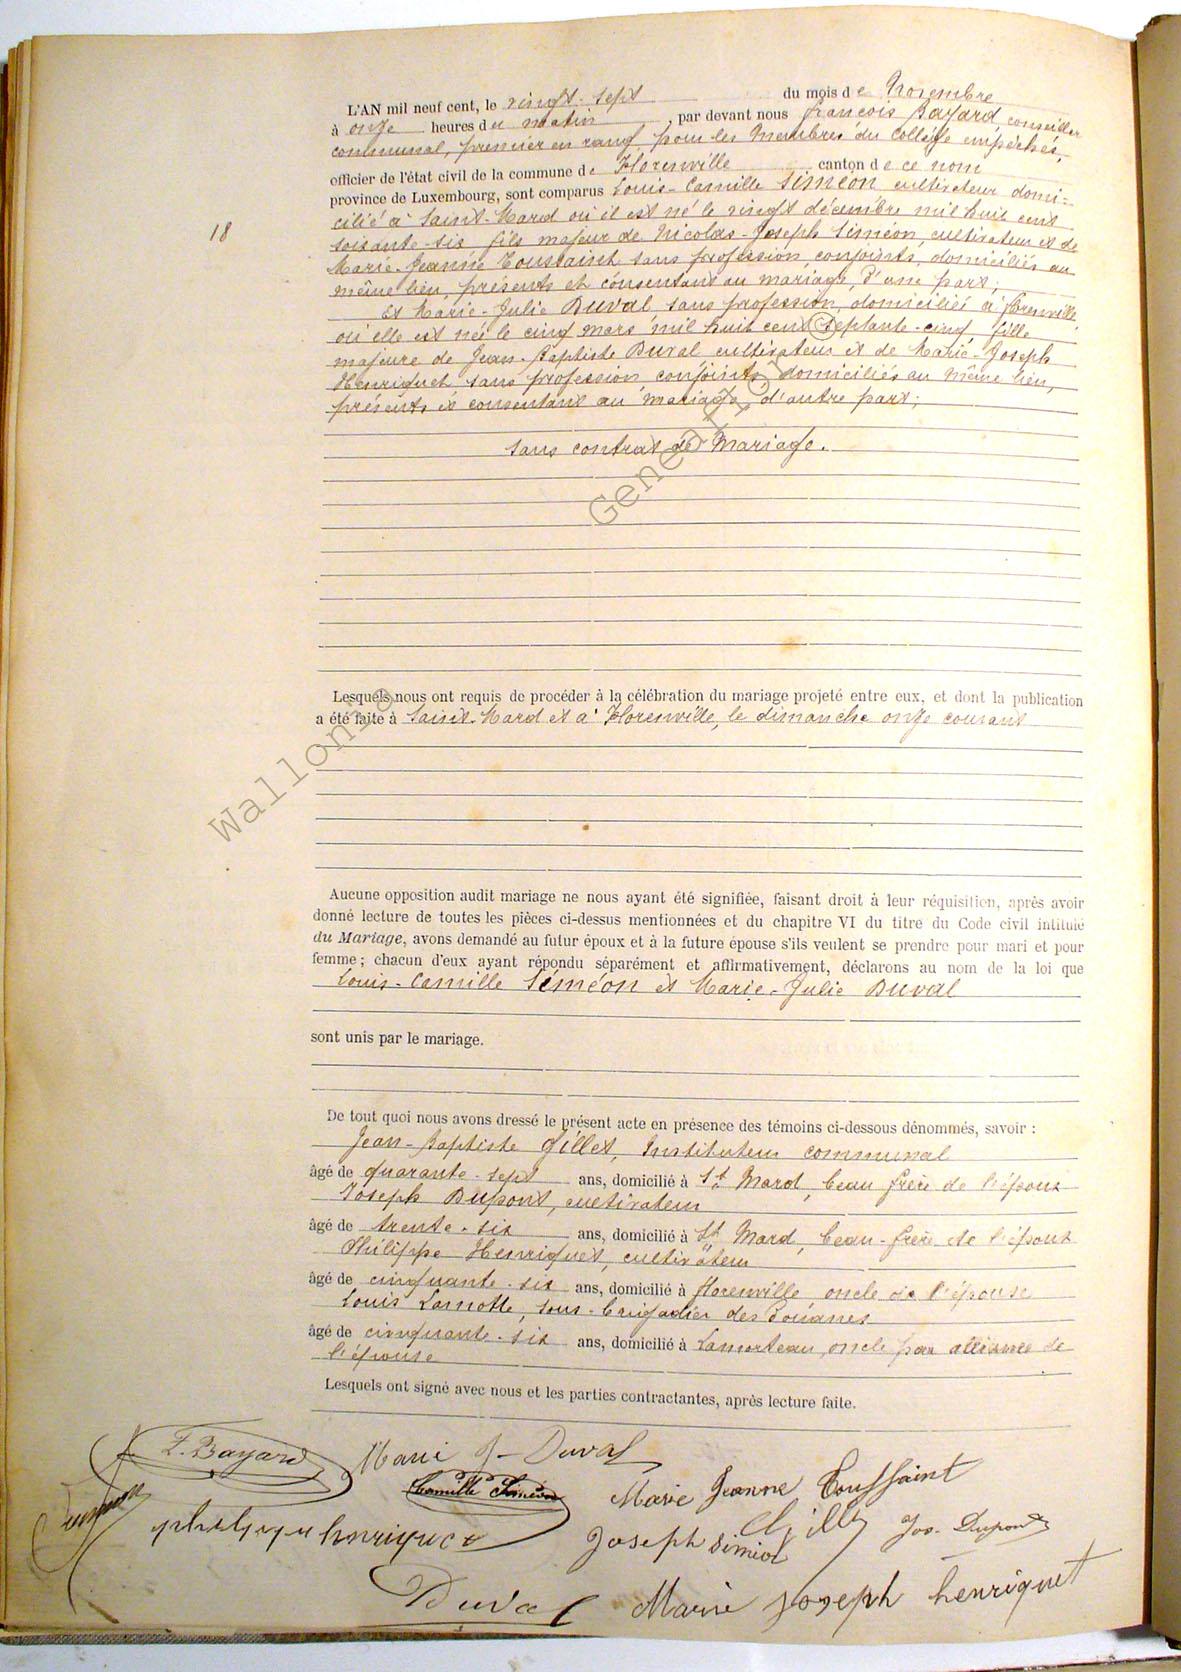 L'AN mil neuf cent, le vingt-sept du mois de Novembre
à onze heures du matin, par devant nous François Bayard, conseiller
communal, premier en rang, pour les Membres du Collège empêchés,
officier de l'état civil de la commune de Florenville canton de ce nom
province de Luxembourg, sont comparus Louis-Camille Siméon cultivateur domi-
18
cilié à Saint-Mard où il est né le vingt décembre mil huit cent
soixante-six fils majeur de Nicolas-Joseph Siméon, cultivateur et de
Marie-Jeanne Toussaint sans profession, conjoints, domiciliés au
même lieu, présents et consentant au mariage, d'une part;
Et Marie-Julie Duval, sans profession, domiciliée à Florenville
où elle est née le cinq mars mil huit cent septante-cinq, fille
majeure de Jean-Baptiste Duval cultivateur et de Marie-Joseph
Henriquet sans profession, conjoints domiciliés au même lieu,
présents et consentant au mariage, d'autre part;
sans contrat de Mariage.
Wallonie Genealogie ©
Lesquels nous ont requis de procéder à la célébration du mariage projeté entre eux, et dont la publication
a été faite à Saint-Mard et à Florenville, le dimanche onze courant
Aucune opposition audit mariage ne nous ayant été signifiée, faisant droit à leur réquisition, après avoir
donné lecture de toutes les pièces ci-dessus mentionnées et du chapitre VI du titre du Code civil intitulé
du Mariage, avons demandé au futur époux et à la future épouse s'ils veulent se prendre pour mari et pour
femme; chacun d'eux ayant répondu séparément et affirmativement, déclarons au nom de la loi que
Louis-Camille Siméon et Marie-Julie Duval
sont unis par le mariage.
De tout quoi nous avons dressé le présent acte en présence des témoins ci-dessous dénommés, savoir :
Jean-Baptiste Gillet, Instituteur communal
âgé de quarante-sept ans, domicilié à St Mard, beau frère de l'époux
Joseph Dupont, cultivateur
âgé de trente-six ans, domicilié à St Mard, beau-frère de l'époux
Philippe Henriquet, cultivateur
âgé de cinquante-six ans, domicilié à Florenville, oncle de l'épouse
Louis Lamotte, sous-brigadier des Douanes
âgé de cinquante-six ans, domicilié à Lamorteau, oncle par alliance de
l'épouse
Lesquels ont signé avec nous et les parties contractantes, après lecture faite.
F. Bayard Marie J-Duval
Camille Siméon Marie Jeanne Toussaint
henriquet Joseph Siméon Gillet Jos. Dupont
Duval Marie joseph henriquet